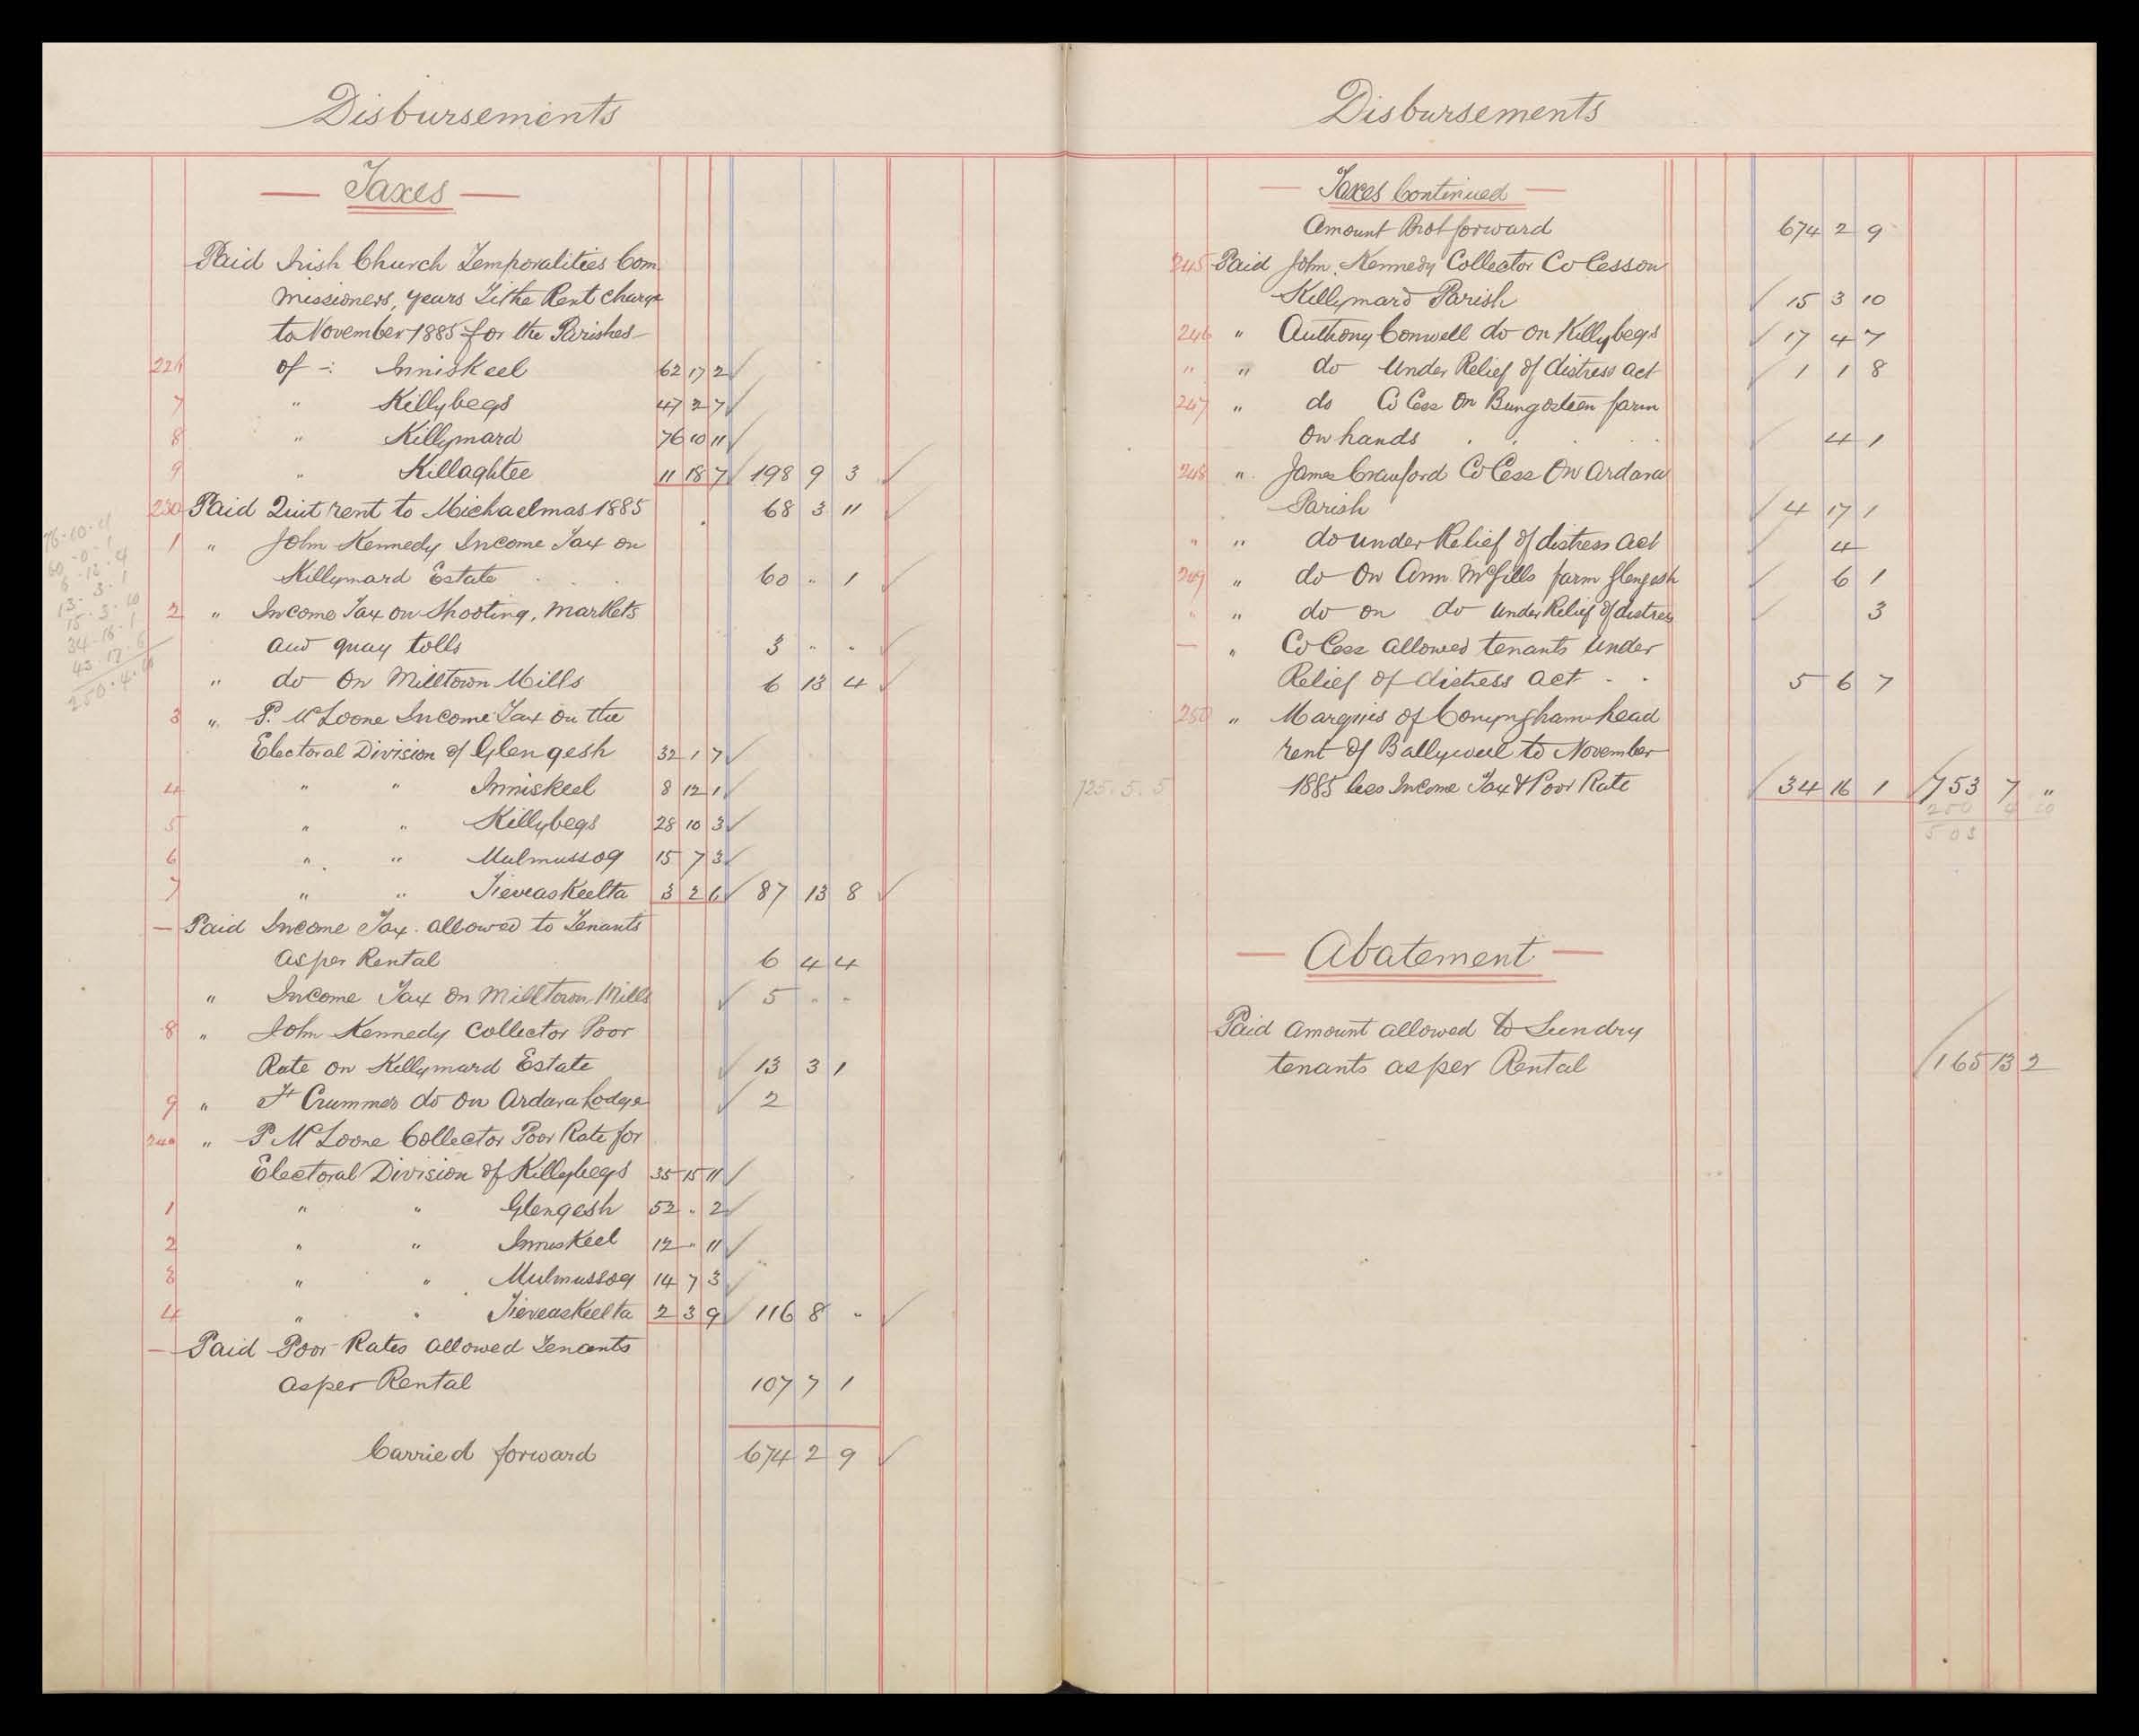 Disbursements
— Taxes —
Paid Irish Church Temporalities Com
missioners, years Tithe Rent charge
to November 1885 for the Parishes
226 of -: Inniskeel 62 17 2
7 " Killybegs 47 2 7
8 " Killymard 76 10 11
9 " Killaghtee 11 18 7 198 9 3
230 Paid Quit rent to Michaelmas 1885 68 3 11
1 " John Kennedy Income Tax on
Killymard Estate 60 " 1
2 " Income Tax on Shooting, Markets
and quay tolls 3 " "
" do On Milltown Mills 6 13 4
3 " P. McLoone Income Tax on the
Electoral Division of Glengesh 32 1 7
4 " " Inniskeel 8 12 1
5 " " Killybegs 28 10 3
6 " " Mulmussog 15 7 3
7 " " Tieveaskeelta 3 2 6 87 13 8
— Paid Income Tax allowed to Tenants
as per Rental 6 4 4
" Income Tax on Milltown Mills 5 " "
8 " John Kennedy Collector Poor
Rate on Killymard Estate 13 3 1
9 " Crummer do on Ardara Lodge 2
240 " P McLoone Collector Poor Rate for
Electoral Division of Killybegs 35 15 11
1 " " Glengesh 52 " 2
2 " " Inniskeel 12 " 11
3 " " Mulmussog 14 7 3
4 " " Tieveaskeelta 2 3 9 116 8 "
— Paid Poor Rates allowed Tenants
as per Rental 107 7 1
Carried forward 674 2 9
Disbursements
— Taxes Continued —
Amount Brot forward 674 2 9
245 Paid John Kennedy Collector Co Cess on
Killymard Parish 15 3 10
246 " Anthony Conwell do on Killybegs 17 4 7
" " do Under Relief of distress act 1 1 8
247 " do Co Cess on Bungosteen farm
on hands 4 1
248 " James Crawford Co Cess On Ardara
Parish 4 17 1
" " do under Relief of distress act 4
249 " do On Ann McGills farm Glengesh 6 1
" " do on do under Relief of distress 3
— " Co Cess allowed tenants under
Relief of distress act 5 6 7
250 " Marquis of Conyngham head
rent of Ballyweel to November
725.5.5 1885 less Income Tax & Poor Rate 34 16 1 753 7 "
250 4 10
503
— Abatement —
Paid amount allowed to Sundry
tenants as per Rental 165 13 2